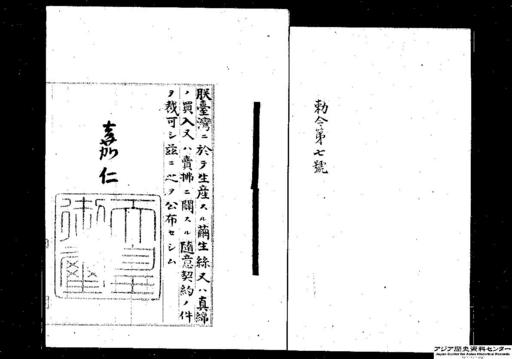 勅令第七號
朕臺灣ニ於テ生産スル繭生絲又ハ真綿
ノ買入又ハ賣拂ニ關スル隨意契約ノ件
ヲ裁可シ茲ニ之ヲ公布セシム
嘉仁
天皇御璽
アジア歴史資料センター
Japan Center for Asian Historical Records